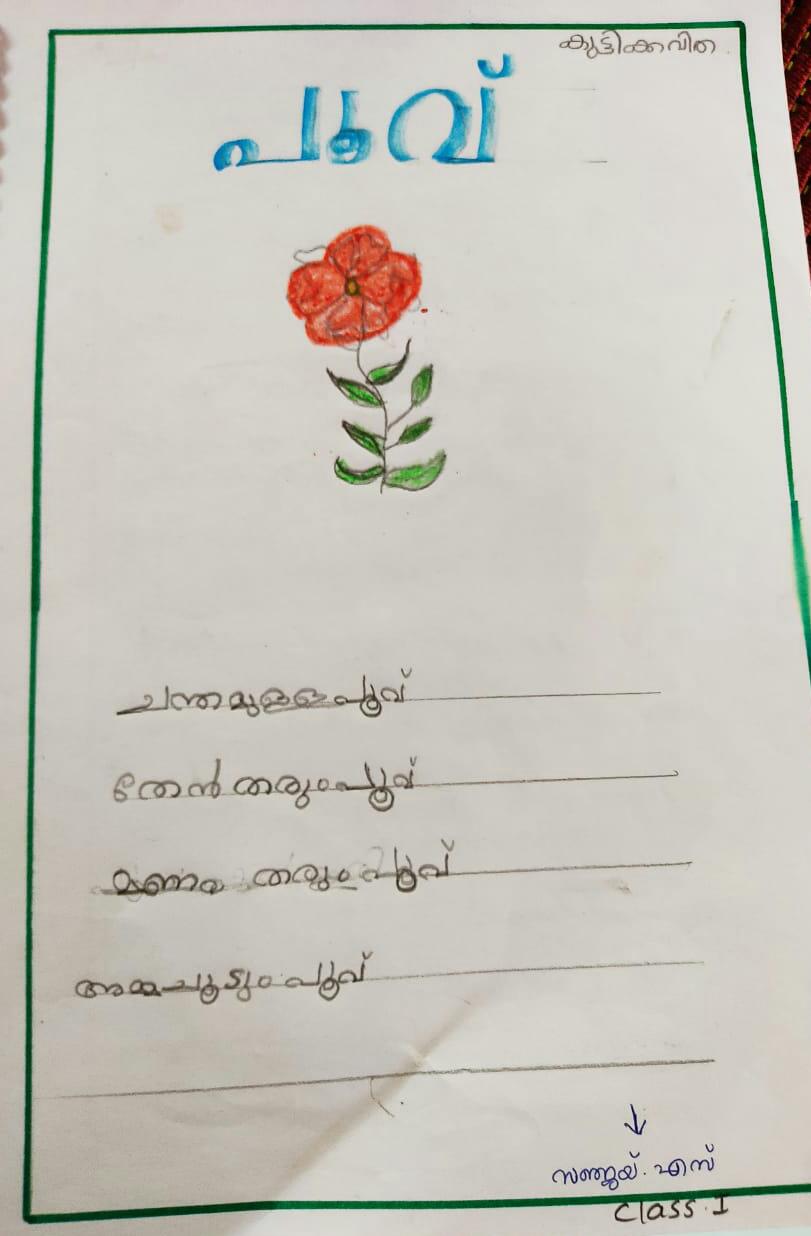 കുട്ടിക്കവിത
പൂവ്
ചന്തമുള്ള പൂവ്
തേൻ തരും പൂവ്
മണം തരും പൂവ്
അമ്മ ചൂടും പൂവ്
സഞ്ജയ്. എസ്
Class I